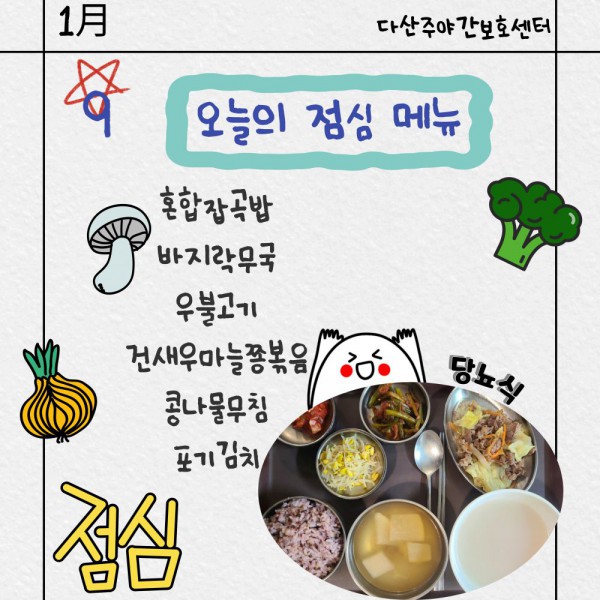 1月
다산주야간보호센터
9
오늘의 점심 메뉴
혼합잡곡밥
바지락무국
우불고기
건새우마늘쫑볶음
콩나물무침
포기김치
당뇨식
점심